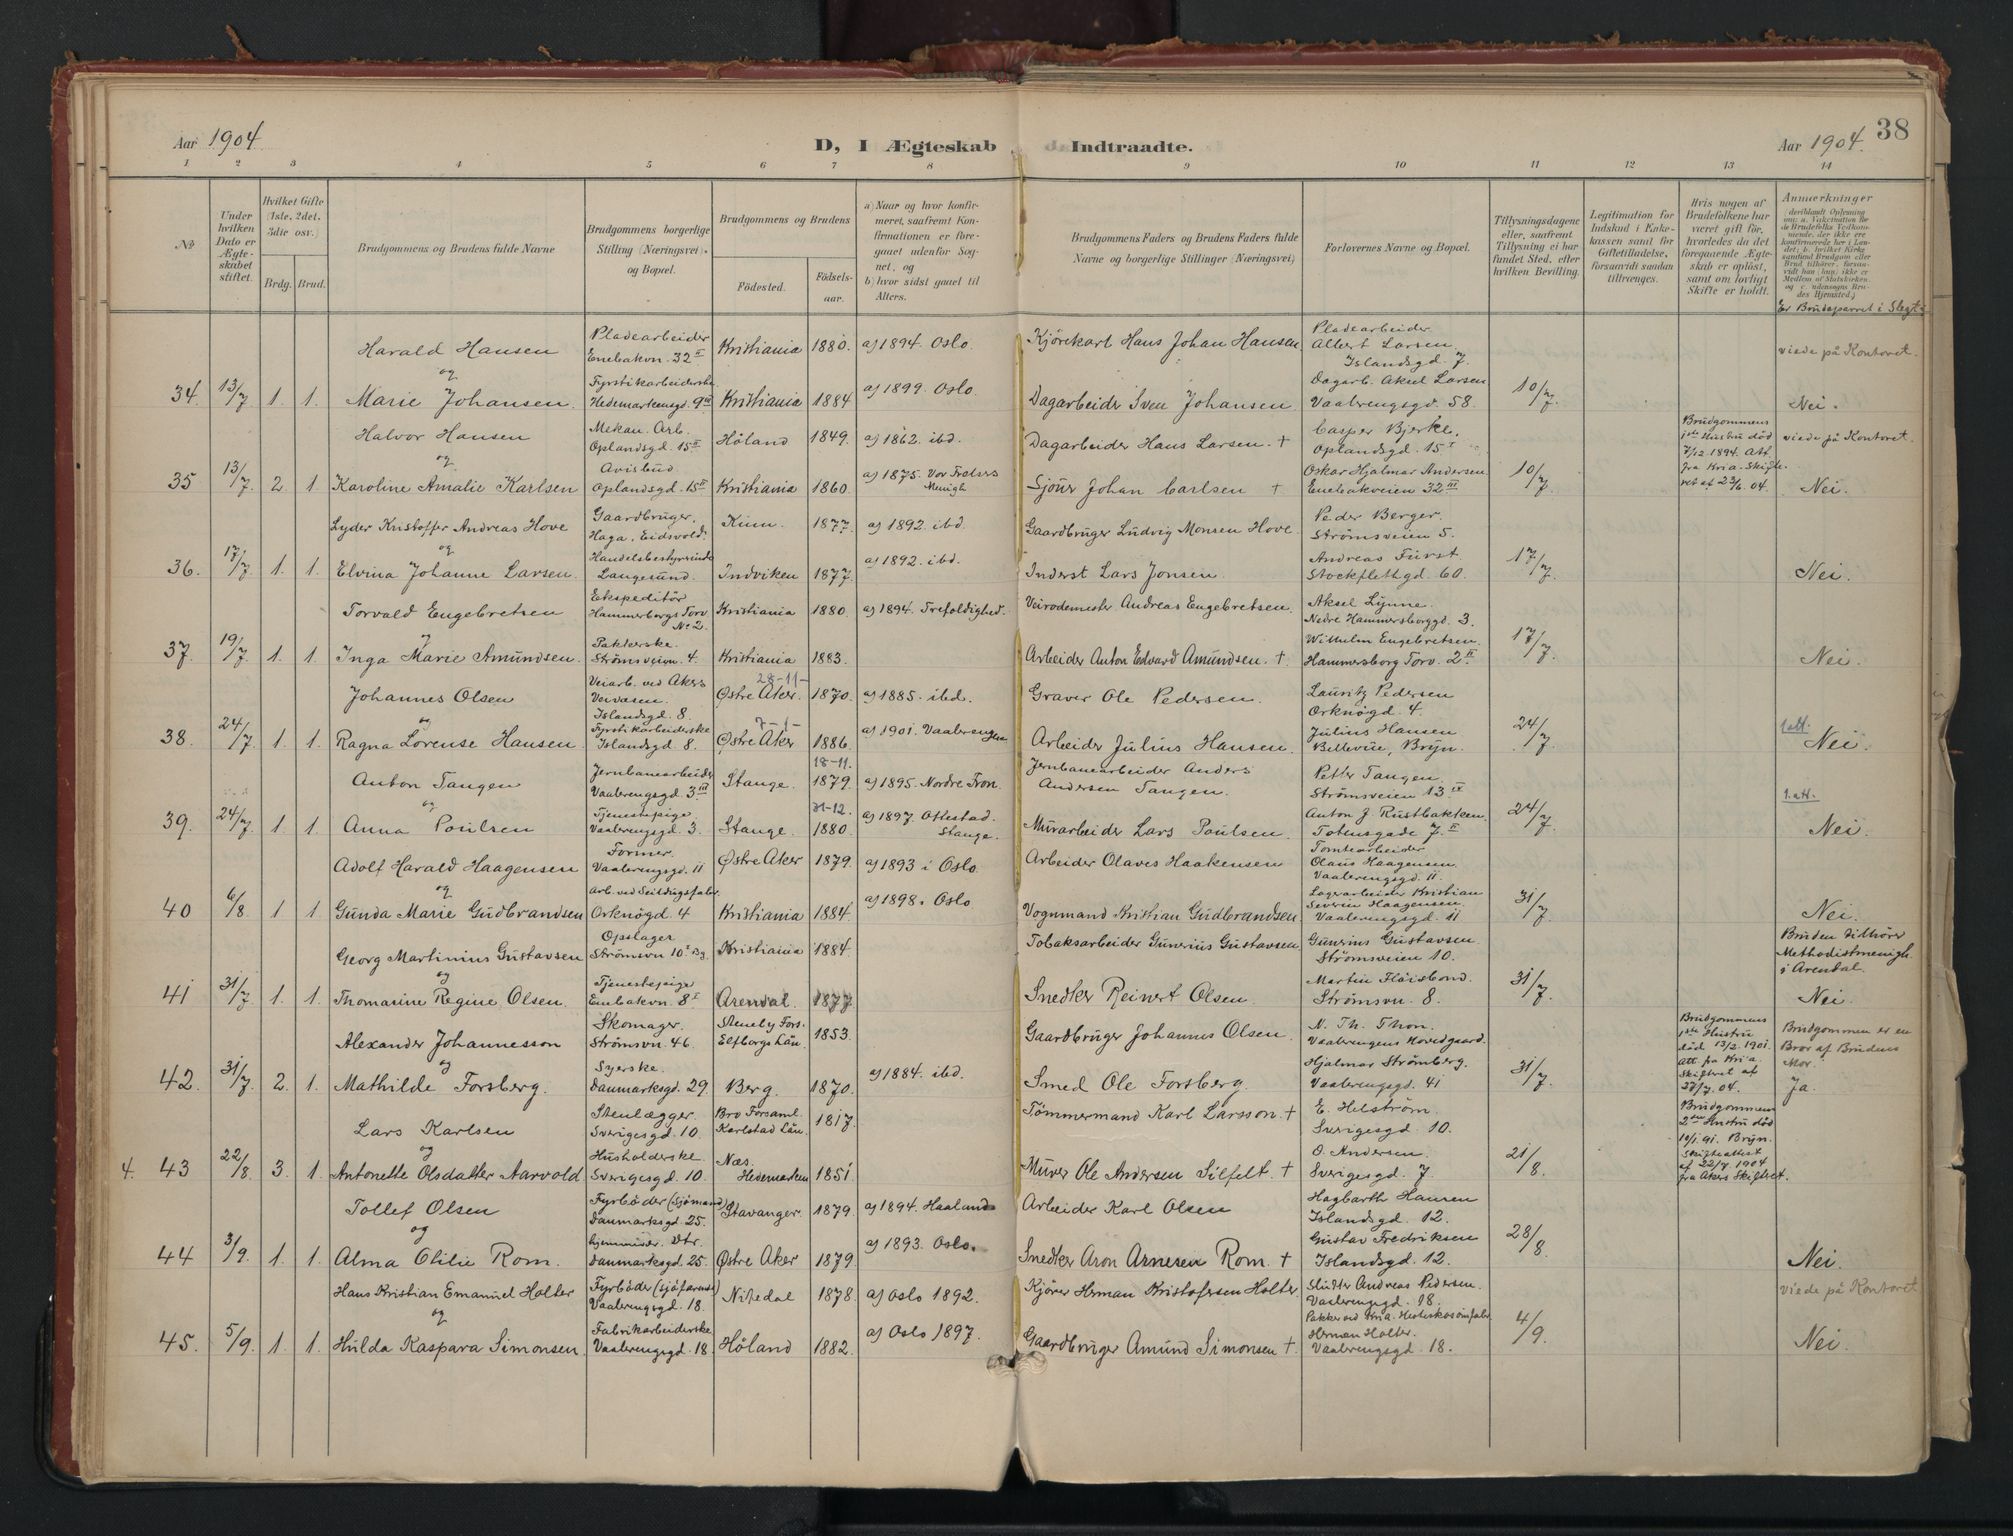 Aar 1904.
D, I Ægteskab Indtraadte.
Aar 1904.
38
1 2 3 4 5 6 7 8 9 10 11 12 13 14
No
Under hvilken Dato er Ægteskabet stiftet.
Hvilket Gifte (1ste, 2det, 3die osv.)
Brdg. Brud.
Brudgommens og Brudens fulde Navne
Brudgommens borgerlige Stilling (Næringsvei) og Bopæl.
Brudgommens og Brudens
Fødested.
Fødselsaar.
a) Naar og hvor konfirmeret, saafremt Konfirmationen er foregaaet udenfor Sognet, og
b) hvor sidst gaaet til Alters.
Brudgommens Faders og Brudens Faders fulde Navne og borgerlige Stillinger (Næringsvei)
Forlovernes Navne og Bopæl.
Tillysningsdagene eller, saafremt Tillysning ei har fundet Sted, efter hvilken Bevilling.
Legitimation for Indskud i Enkekassen samt for Giftetilladelse, forsaavidt saadan tiltrænges.
Hvis nogen af Brudefolkene har været gift før, hvorledes da det foregaaende Ægteskab er opløst, samt om lovligt Skifte er holdt.
Anmerkninger
Er Brudeparret i Slegt:
Harald Hansen
Pladearbeider
Enebakvn. 32 II
Kristiania
1880.
a) 1894. Oslo.
Kjørekarl Hans Johan Hansen
Pladearbeider
Albert Larsen
Islandsgd. 7
viede på Kontoret.
og
34. 13/7 1. 1. Marie Johansen.
Fyrstikarbeiderske
Hedemarkensgd. 9 III
Kristiania
1884
a) 1899. Oslo
Dagarbeider Sven Johansen
Dagarb. Aksel Larsen
Vaalerengsgd. 58.
10/7
Nei.
Halvor Hansen
Mekan. Arb.
Oplandsgd. 15 II
Høland
1849.
a) 1862. ibd.
Dagarbeider Hans Larsen. +
Casper Bjerke.
Oplandsgd. 15 I
Brudgommens
1ste Hustru død
7/12 1894. Att.
fra Kria. Skifte-
ret af 23/6. 04.
viede på Kontoret.
og
35 13/7 2. 1. Karoline Amalie Karlsen
Avisbud
Oplandsgd. 15 II
Kristiania
1860.
a) 1875. Vor Frelsers
Menigh
Sjøur Johan Carlsen +
Oskar Hjalmar Andersen
Enebakveien 32 III
10/7
Nei.
Lyder Kristoffer Andreas Hove
Gaardbruger,
Haga, Eidsvold.
Kinn.
1877.
a) 1892. ibd.
Gaardbruger Ludvig Monsen Hove
Peder Berger.
Strömsveien 5.
og
36. 17/7 1. 1. Elvina Johanne Larsen.
Handelsbestyrerinde
Langesund.
Indviken
1877.
a) 1892. ibd.
Inderst Lars Jonsen.
Andreas Fürst.
Stockflethgd. 60.
17/7
Nei.
Torvald Engebretsen
Ekspeditör
Hammersborgs Torv
No 2.
Kristiania
1880
a) 1894. Trefoldighed.
Veirodemester Andreas Engebretsen.
Aksel Lynne.
Nedre Hammersborggd. 3.
og
37. 19/7 1. 1. Inga Marie Amundsen.
Pakkerske.
Strömsveien 4.
Kristiania
1883.
Arbeider Anton Edvard Amundsen. +
Wilhelm Engebretsen.
Hammersborg Torv. 2 II
17/7
Nei.
Johannes Olsen
Veiarb. ved Akers
Veivæsen.
Islandsgd. 8.
28-11-
Østre Aker.
1870.
a) 1885. ibd.
Graver Ole Pedersen.
Lauritz Pedersen
Orknögd. 4.
og
38. 24/7 1. 1. Ragna Lorense Hansen
Fyrstikarbeiderske
Islandsgd. 8
7-1-
Østre Aker
1886.
a) 1901. Vaalerengen
Arbeider Julius Hansen.
Julius Hansen
Bellevue, Bryn.
24/7
1. att.
Nei.
Anton Tangen
Jernbanearbeider
Vaalerengsgd. 3 III
Stange.
18-11.
1879.
a) 1895. Nordre Fron.
Jernbanearbeider Anders
Andersen Tangen.
Petter Tangen.
Strömsveien 13 IV
og
39. 24/7 1. 1. Anna Poulsen
Tjenestepige
Vaalerengsgd. 3.
Stange.
31-12.
1880.
a) 1897. Ottestad.
Stange.
Murarbeider Lars Poulsen.
Anton J. Rustbakken
Totensgade 7 II
24/7
1. att.
Nei.
Adolf Harald Haagensen
Former.
Vaalerengsgd. 11
Østre Aker
1879.
a) 1893 i Oslo
Arbeider Olaves Haakensen
Tomtearbeider
Olaus Haagensen.
Vaalerengsgd. 11.
og
40 6/8. 1 1. Gunda Marie Gudbrandsen
Arb. ved Seildugsfabr.
Orknögd. 4
Kristiania
1884.
a) 1898. Oslo
Vognmand Kristian Gudbrandsen
Lagerarbeider Kristian
Severin Haagensen.
Vaalerengsgd. 11
31/7
Nei.
Georg Martinius Gustavsen
Opslager
Strömsvn 10 I Bg.
Kristiania
1884.
Tobaksarbeider Gunerius Gustavsen
Gunerius Gustavsen
Strömsveien 10.
Bruden tilhörer
Methodistmenigh.
i Arendal.
og
41 31/7 1. 1. Thomarine Regine Olsen.
Tjenestepige
Enebakvn. 8 I
Arendal.
1877
Snedker Reinert Olsen.
Martin Flöisbond.
Strömsvn. 8.
31/7
Nei.
Alexander Johannesson
Skomager.
Strömsvn. 46.
Steneby Fors.
Elfborgs Län.
1853.
Gaardbruger Johannes Olsen.
N. Th. Thon.
Vaalerengens Hovedgaard.
Brudgommens
1ste Hustru
död 13/2. 1901.
Att. fra Kria.
Skifteret af
27/7. 04.
Brudgommen er en
Bror af Brudens
Mor.
og
42. 31/7 2. 1. Mathilde Forsberg.
Syerske.
Danmarksgd. 29.
Berg.
1870.
a) 1884. ibd.
Smed Ole Forsberg.
Hjalmar Strömberg.
Vaalerengsgd. 41
31/7
Ja.
Lars Karlsen
Stenlægger
Sverigesgd. 10.
Bro Forsaml.
Karlstad Län.
1817.
Tömmermand Karl Larsson +
E. Helström.
Sverigesgd. 10.
Brudgommens
2den Hustru död
10/1. 91. Bryn.
Skifteattest
af 22/7 1904
fra Akers Skifteret.
og
4. 43 22/8 3. 1. Antonette Olsdatter Aarvold
Husholderske.
Sverigesgd. 10
Næs.
Hedemarken
1851.
Murer Ole Andersen Silfelt. +
O. Andersen.
Sverigesgd. 7
21/8.
Tollef Olsen
Fyrböder (Sjömand)
Danmarksgd. 25.
Stavanger.
1879.
a) 1894. Haaland
Arbeider Karl Olsen
Hagbarth Hansen
Islandsgd. 12.
og
44 3/9. 1. 1. Alma Otilie Rom.
hjemmevær. Dtr.
Danmarksgd. 25.
Østre Aker
1879
a) 1893. Oslo.
Snedker Aron Arnesen Rom. +
Gustav Fredriksen
Islandsgd. 12.
28/8.
Nei.
Hans Kristian Emanuel Holter
Fyrböder (sjöfarende)
Vaalerengsgd. 18.
Nitedal
1878.
a) Oslo 1892.
Kjører Herman Kristofersen Holter.
Slutter Andreas Pedersen.
Vaalerengsgd. 18.
viede på Kontoret
og
45. 5/9. 1. 1. Hulda Kaspara Simonsen
Fabrikarbeiderske
Vaalerengsgd. 18.
Høland
1882.
a) Oslo 1897.
Gaardbruger Amund Simonsen +.
Pakker ved Kria. Hesteskosömfabr.
Herman Holter.
Vaalerengsgd. 18.
4/9.
Nei.